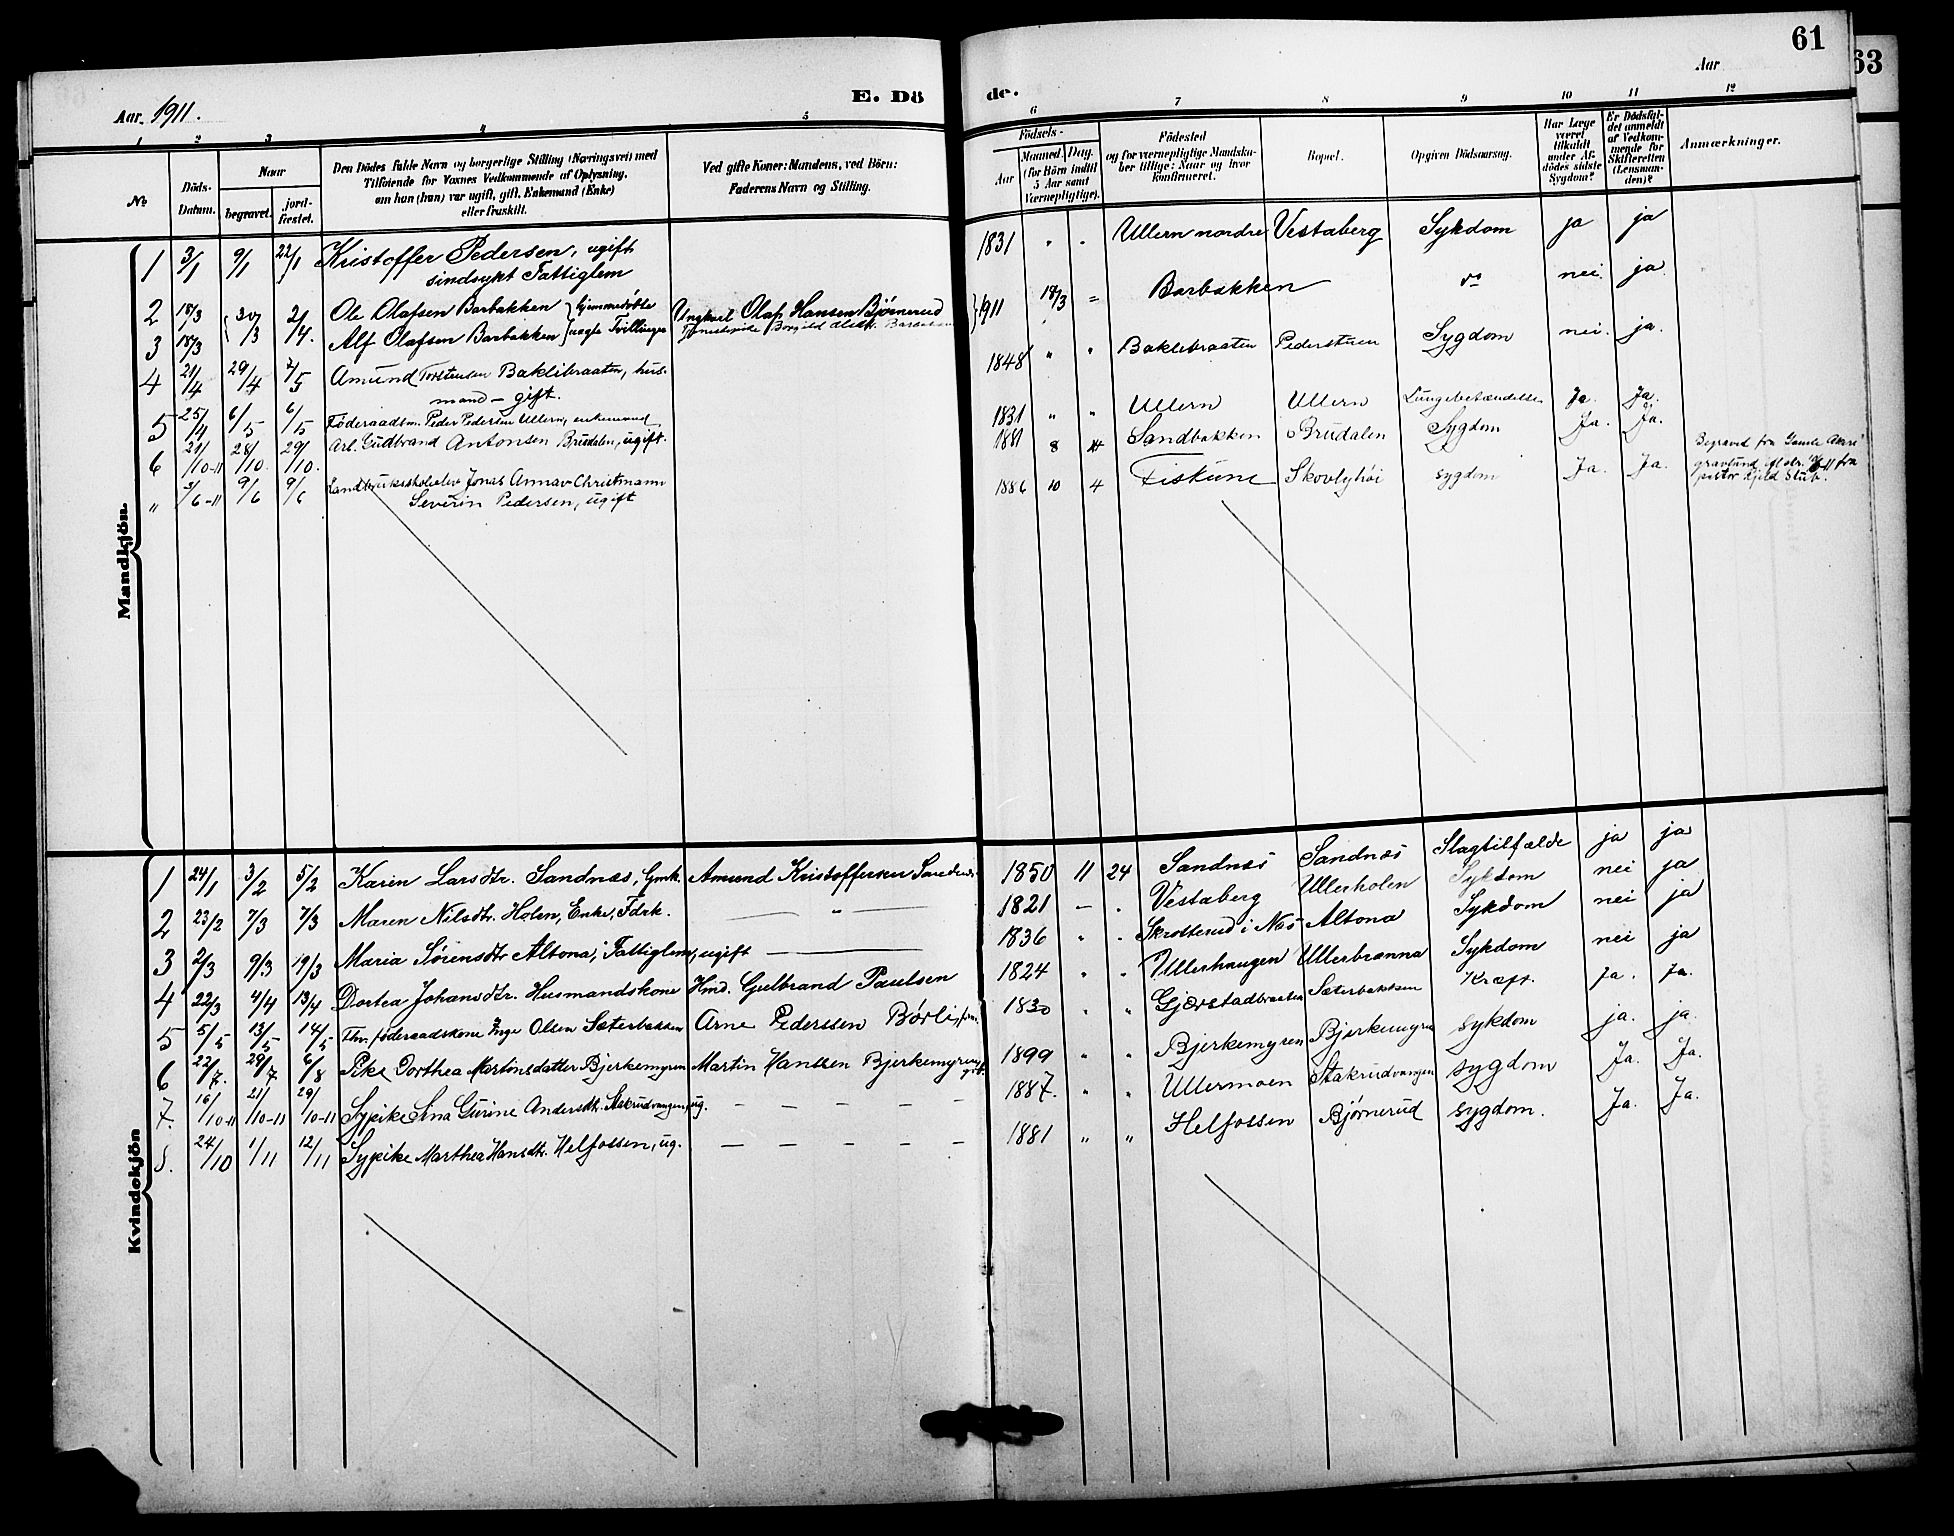 61
63
Aar. 1911.
E. Dö
de.
Aar
1 2 3 4 5
6 7 8 9 10 11 12
No
Döds-Datum.
Naar
begravet.
jord-fæstet.
Den Dödes fulde Navn og borgerlige Stilling (Næringsvei) med
Tilföiende for Voxnes Vedkommende af Oplysning,
om han (hun) var ugift, gift, Enkemand (Enke)
eller fraskilt.
Ved gifte Koner: Mandens, ved Börn:
Faderens Navn og Stilling.
Födsels-
Aar
Maaned. Dag.
(for Börn indtil
5 Aar samt
Værnepligtige).
Födested
og for værnepligtige Mandska-
ber tillige: Naar og hvor
konfirmeret.
Bopæl.
Opgiven Dödsaarsag.
Har Læge
været
tilkaldt
under Af-
dödes sidste
Sygdom?
Er Dödsfal-
det anmeldt
af Vedkom-
mende for
Skifteretten
(Lensman-
den)?
Anmærkninger.
Mandkjön.
1 3/1 9/1 22/1 Kristoffer Pedersen, ugift 1831 " " Ullern nordre Vestaberg Sykdom ja ja
sindsykt Fattiglem
2 18/3 30/3 2/4. Ole Olafsen Barbakken } hjemmedøbte Ungkarl Olaf Hansen Bjørnerud 1911 18/3 = Barbakken do nei. ja.
3 18/3 Alf Olafsen Barbakken } uegte Tvillinger
4 21/4 29/4 7/5 Amund Torstensen Baklibraaten, hus- 1848 " " Baklibraaten Pederstuen Sygdom nei. ja.
mand – gift.
5 25/4 6/5 6/5 Föderaadsm. Peder Pedersen Ullern, enkemand 1831 " " Ullern Ullern Lungebetændelse Ja. Ja.
6 21/10-11 28/10. 29/10. Arb. Gudbrand Antonsen Brudalen, ugift. 1881 8 Sandbakken Brudalen Sygdom Ja. Ja.
" 3/6-11 9/6 9/6 Landbruksskoleelev Jonas Annar Christmann 1886 10 4 Fiskum Skovlyhöi sygdom Ja. Ja. Begravet fra Gamle Akers
gravlund fra
pastor Kjeld Stub.
Severin Pedersen, ugift
Kvindekjön
1 24/1 3/2 5/2 Karen Larsdtr. Sandnæs, Gmk. Amund Kristoffersen 1850 11 24 Sandnæs Sandnæs Slagtilfælde ja ja
2 23/2 7/3 7/3 Maren Nilsdtr. Holen, Enke, Fdrk. — " — 1821 – . Vestaberg Ullerholen Sykdom nei ja
3 2/3 9/3 19/3 Maria Sörensdtr Altona, Fattiglem, ugift — 1836 " . Skrotterud i Nes Altona Sykdom nei ja
4 22/3 4/4 13/4 Dortea Johansdtr. Husmandskone Hmd. Gulbrand Paulsen 1824 " " Ullerhaugen Ullerbrænna Sykdom nei ja
5 5/5 13/5 14/5 Fhv. föderaadskone Inge Olsen Sæterbakken Arne Pederssen Børli, 1830 " " Gjærstadbraaten Sæterbakken Kræft. ja. ja.
6 22/7. 29/7 6/8 Pike Dorthea Martinsdatter Bjerkemyren Martin Hanssen Bjerkemyren, 1899 " " Bjerkemyren Bjerkemyren sykdom ja. ja.
7. 16/10-11 21/10-11 29/10-11 Sypike Anna Gurine Andersdtr. Stakrudvangen, ug. – – – – – 1887. " " Ullermoen Stakrudvangen sygdom Ja. Ja.
8. 24/10 1/11 12/11 Sypike Marthea Hansdtr. Helfossen, ug. – – – – – 1881 " " Helfossen Bjørnerud sygdom. Ja. Ja.